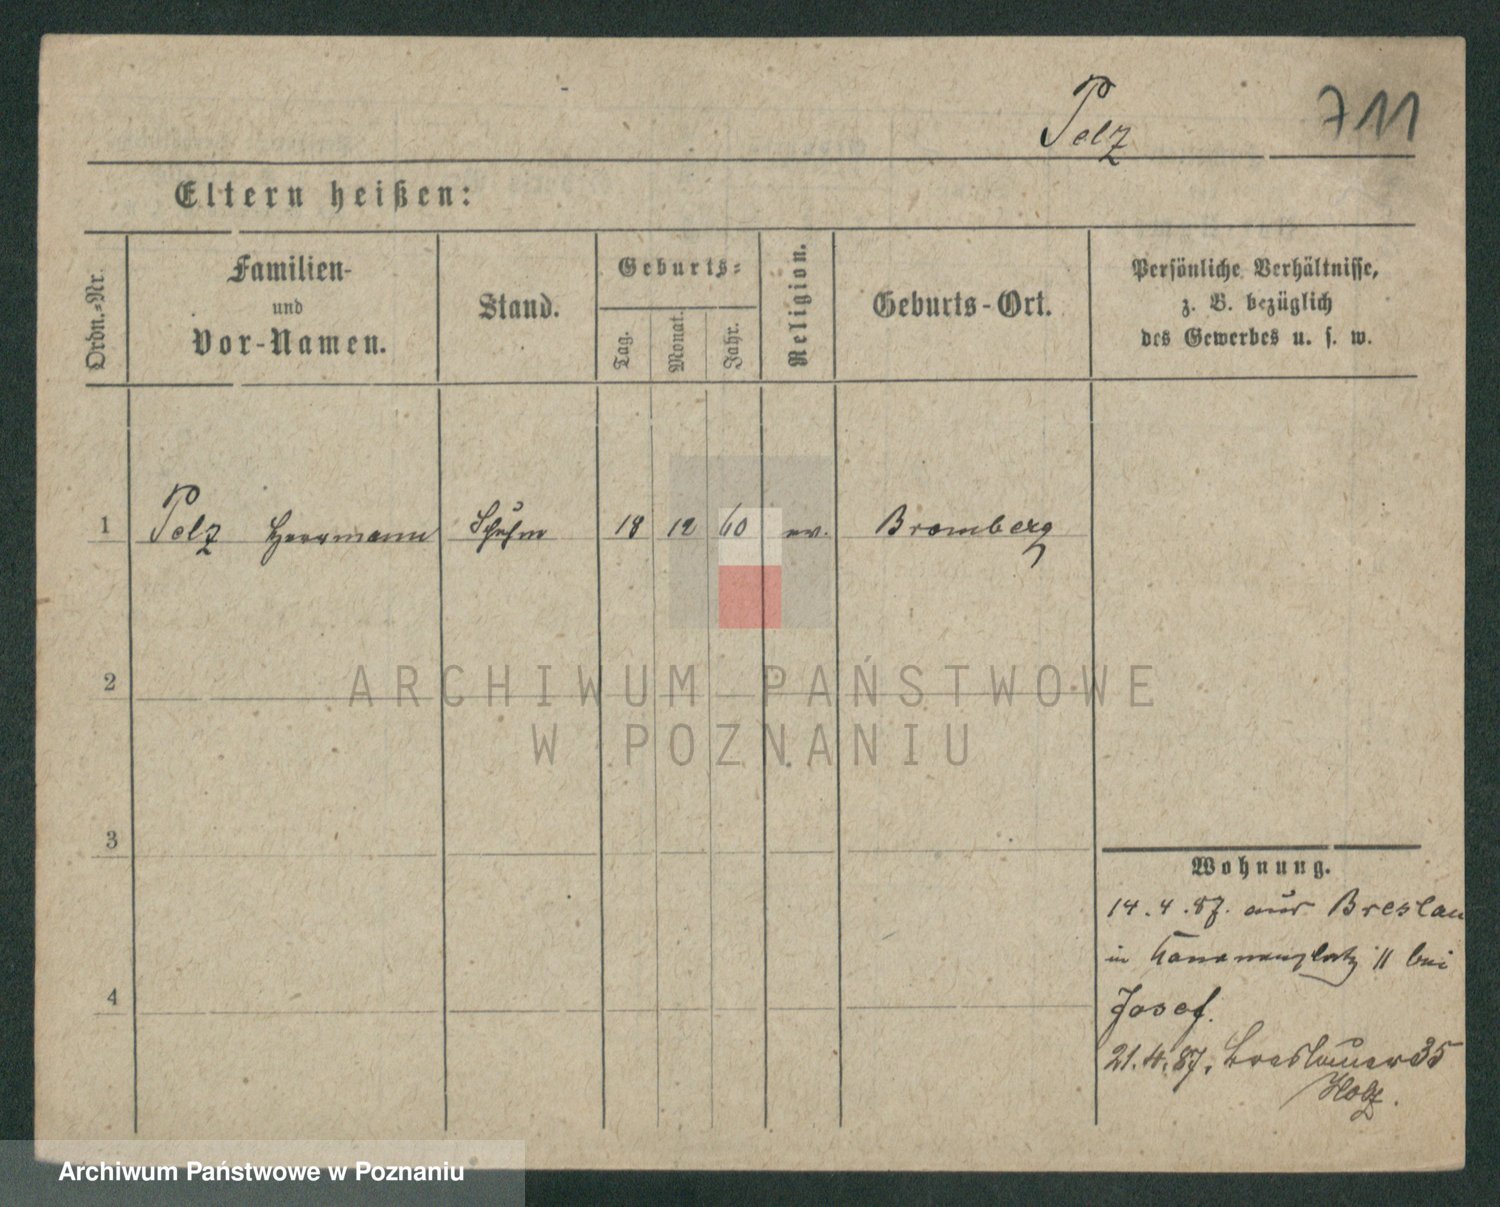 Pelz 711
Eltern heißen:
Ordn.-Nr.
Familien-
und
Vor-Namen.
Stand.
Geburts-
Tag.
Monat.
Jahr.
Religion.
Geburts-Ort.
Persönliche Verhältnisse,
z. B. bezüglich
des Gewerbes u. s. w.
1 Pelz Herrmann Schuhm 18 12 60 ev. Bromberg
2
3
4
Wohnung.
14.4.87. aus Breslau
in 11 bei
Josef.
21.4.87. Breslauer 35
Holz.
ARCHIWUM PAŃSTWOWE
W POZNANIU
Archiwum Państwowe w Poznaniu